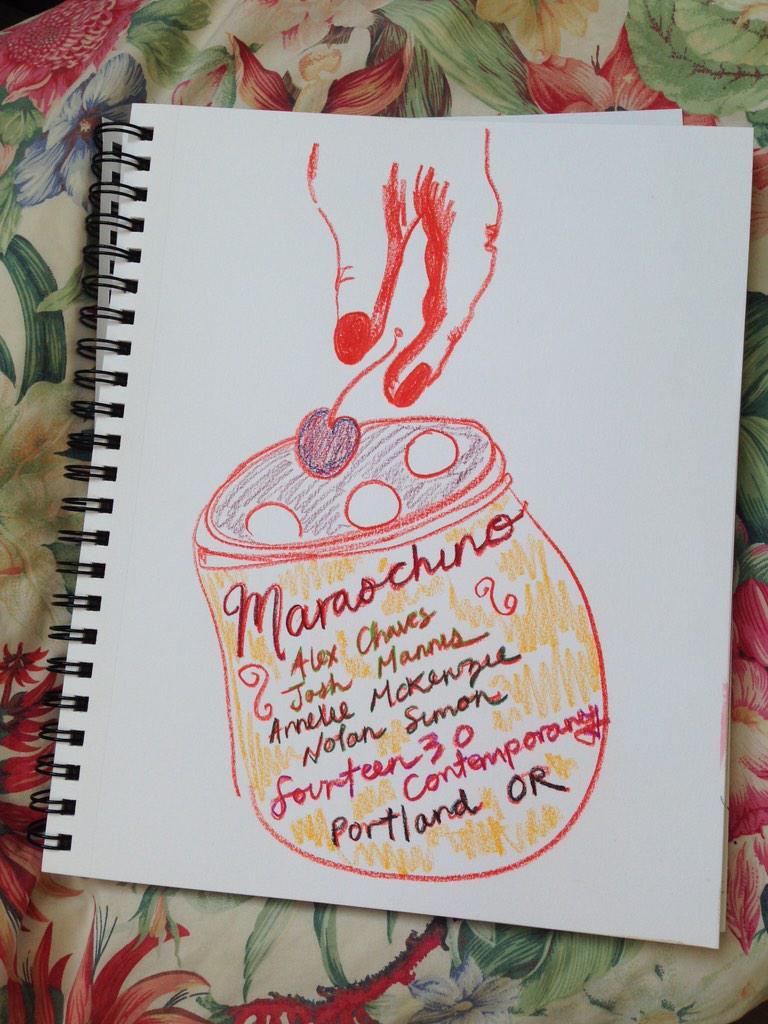 Maraochino
Alex Chaves
Josh Mannis
Amelie McKenzie
Nolan Simon
fourteen30
Contemporary
Portland OR